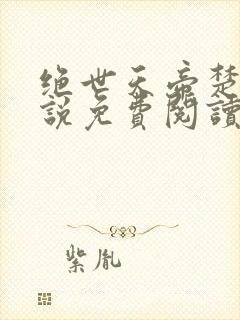 绝世天帝楚
說免費閱讀
紫胤